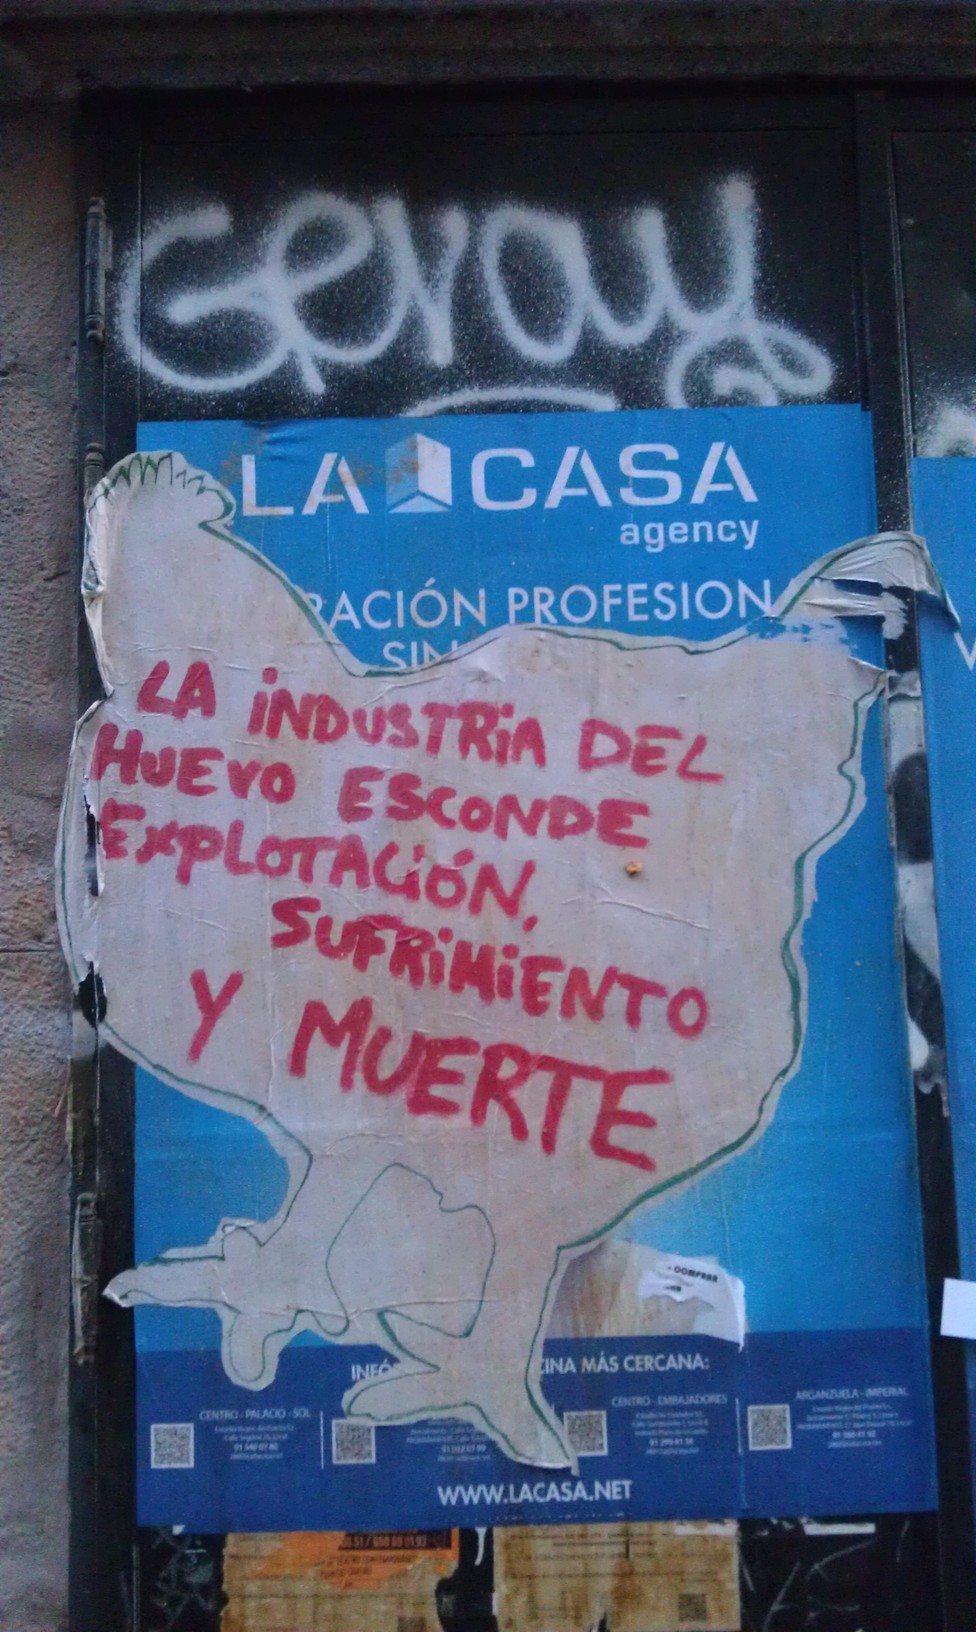 Geray
LA CASA
agency
RACIÓN PROFESION
SIN
LA iNDUSTRiA DEL
HUEVO ESCONDE
EXPLOTACiÓN,
SUFRiMiENTO
Y MUERTE
COMPRAR
INFÓR
CINA MÁS CERCANA:
CENTRO - PALACIO - SOL
CENTRO - EMBAJADORES
ARGANZUELA - IMPERIAL
WWW.LACASA.NET